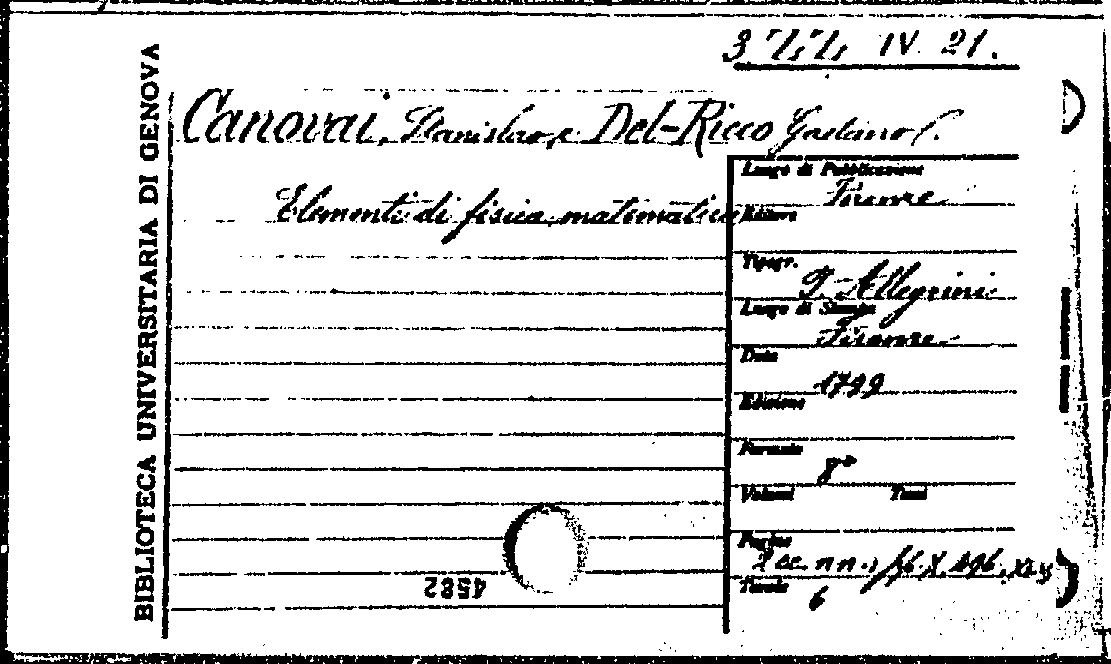 3 ZZ IV. 21.
BIBLIOTECA UNIVERSITARIA DI GENOVA
Canovai, Stanislao, e Del-Ricco Gaetano
Elementi di fisica matematica
Luogo di Pubblicazione
Firenze
Editore
Tipogr.
Allegrini
Luogo di Stampa
Firenze
Data
1799
Edizione
Formato
8°
Volumi Tomi
Pagine
2 cc. nn.,
Tavole
6
4582